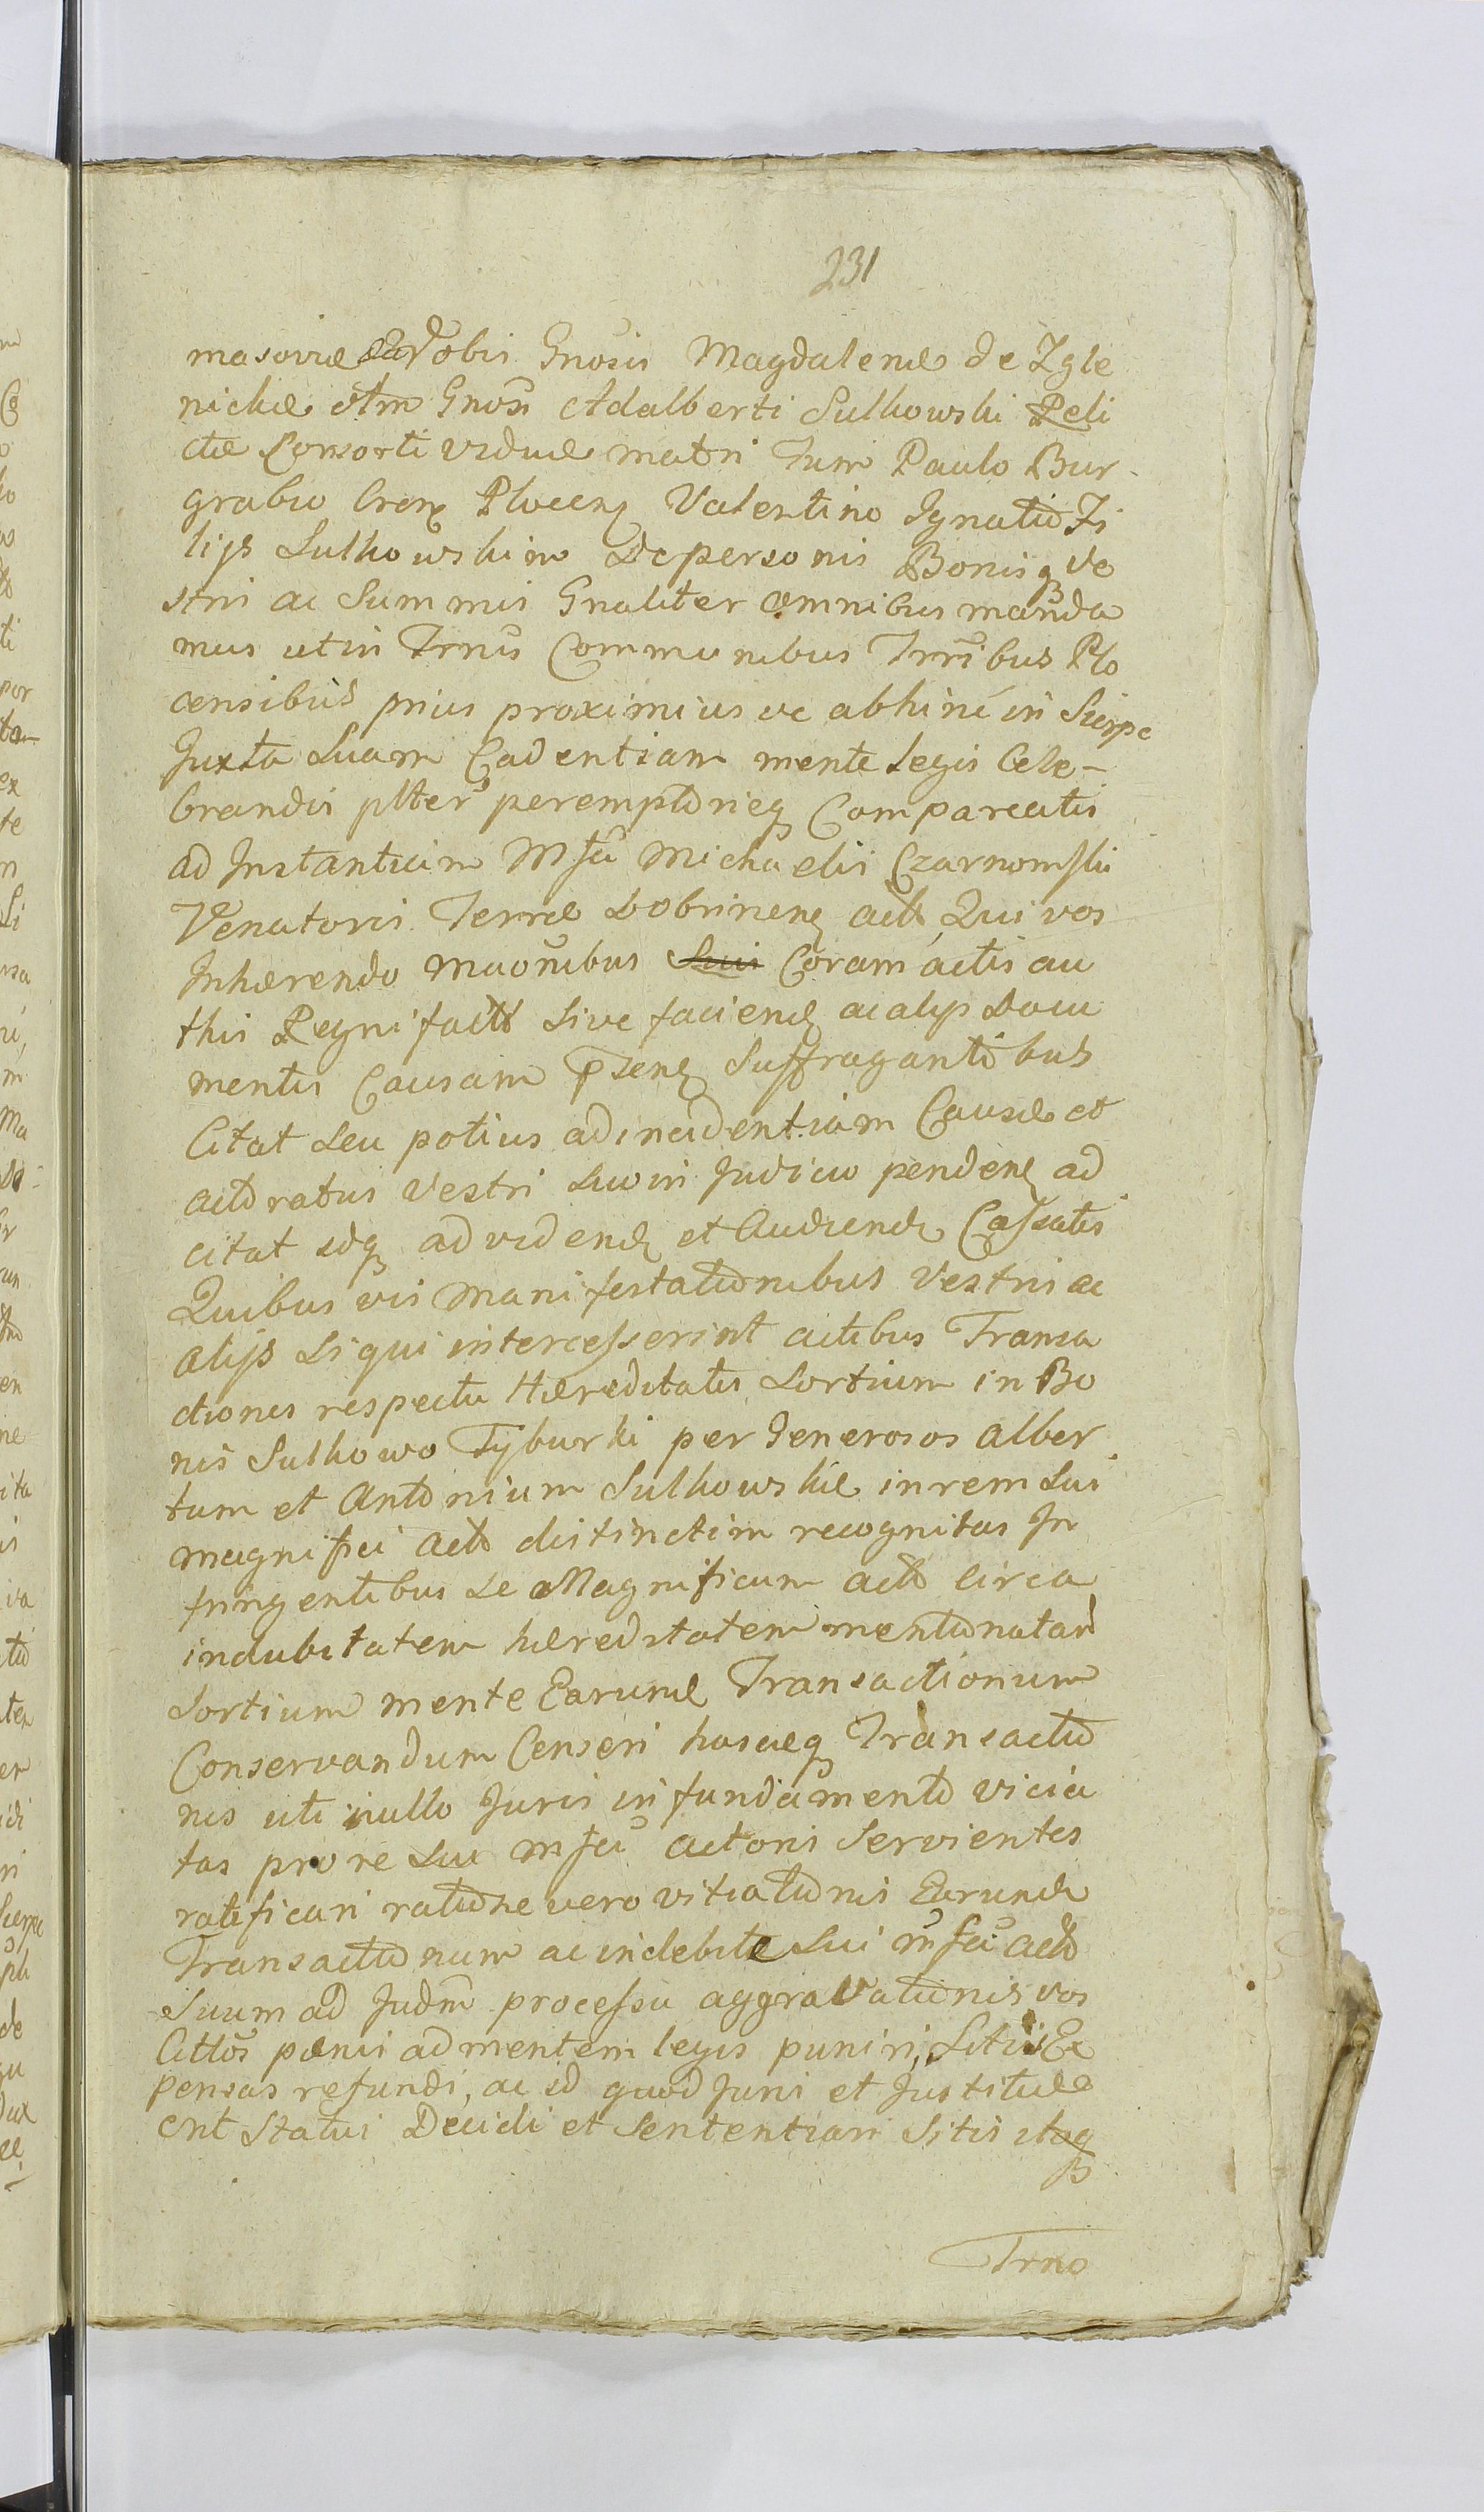 231
masoviæ Vobis Gnosis Magdalenæ de Zgle
nickiæ otm Gnosi Adalberti Sulkowski Reli
ctæ Consorti viduæ matri Tum Paulo Bur-
grabio Cren Plocen Valentino Ignatio Fi
lijs Sulkowskim De personis Bonisq ve
stri ac Summis Gnaliter omnibus manda
mus ut in Trnis Communibus Trribus Plo
censibus prius proximius ve abhinc in Sierpc
Juxta Suam Cadentiam mente Legis Cele-
brandis plter peremptorieq Compareatis
ad Instantiam Mfci Michaelis Czarnomski
Venatoris Terræ Dobrinen act, Qui vos
Inhærendo maonibus Suis Coram actis au
this Regni fact Sive faciend ac alijs Docu
mentis Causam psen Suffragantibus
Citat Seu potius ad incidentiam Causæ et
actoratus Vestri Suo in Judicio penden ad
citat idq ad vidend et Audiend Cassatis
Quibus vis manifestationibus Vestris ac
alijs Si qui intercesserint actibus Transa
ctiones respectu Hæreditatis Sortium in Bo
nis Sulkowo Tyburki per Generosos Alber
tum et Antonium Sulkowskie in rem Sui
magnifici Act distinctim recognitas In
fringentibus Se Magnificum act circa
indubitatem hæreditatem mentionatar
Sortium mente Earund Transactionum
Conservandum Censeri hasceq Transactio
nes uti nullo Juris in fundamento vicia
tas pro re Sua mfci actori Servientes
ratificari ratione vero vitiationis Earund
Transactionum ac indebite Sui mfci act
Suum ad Judm processu aggravationis vos
Cittos pænis ad mentem legis puniri, Litis Ex
pensas refundi, ac id quod Juris et Justitiæ
erit Statui Decidi et Sententiari Sitis itaq
Trno